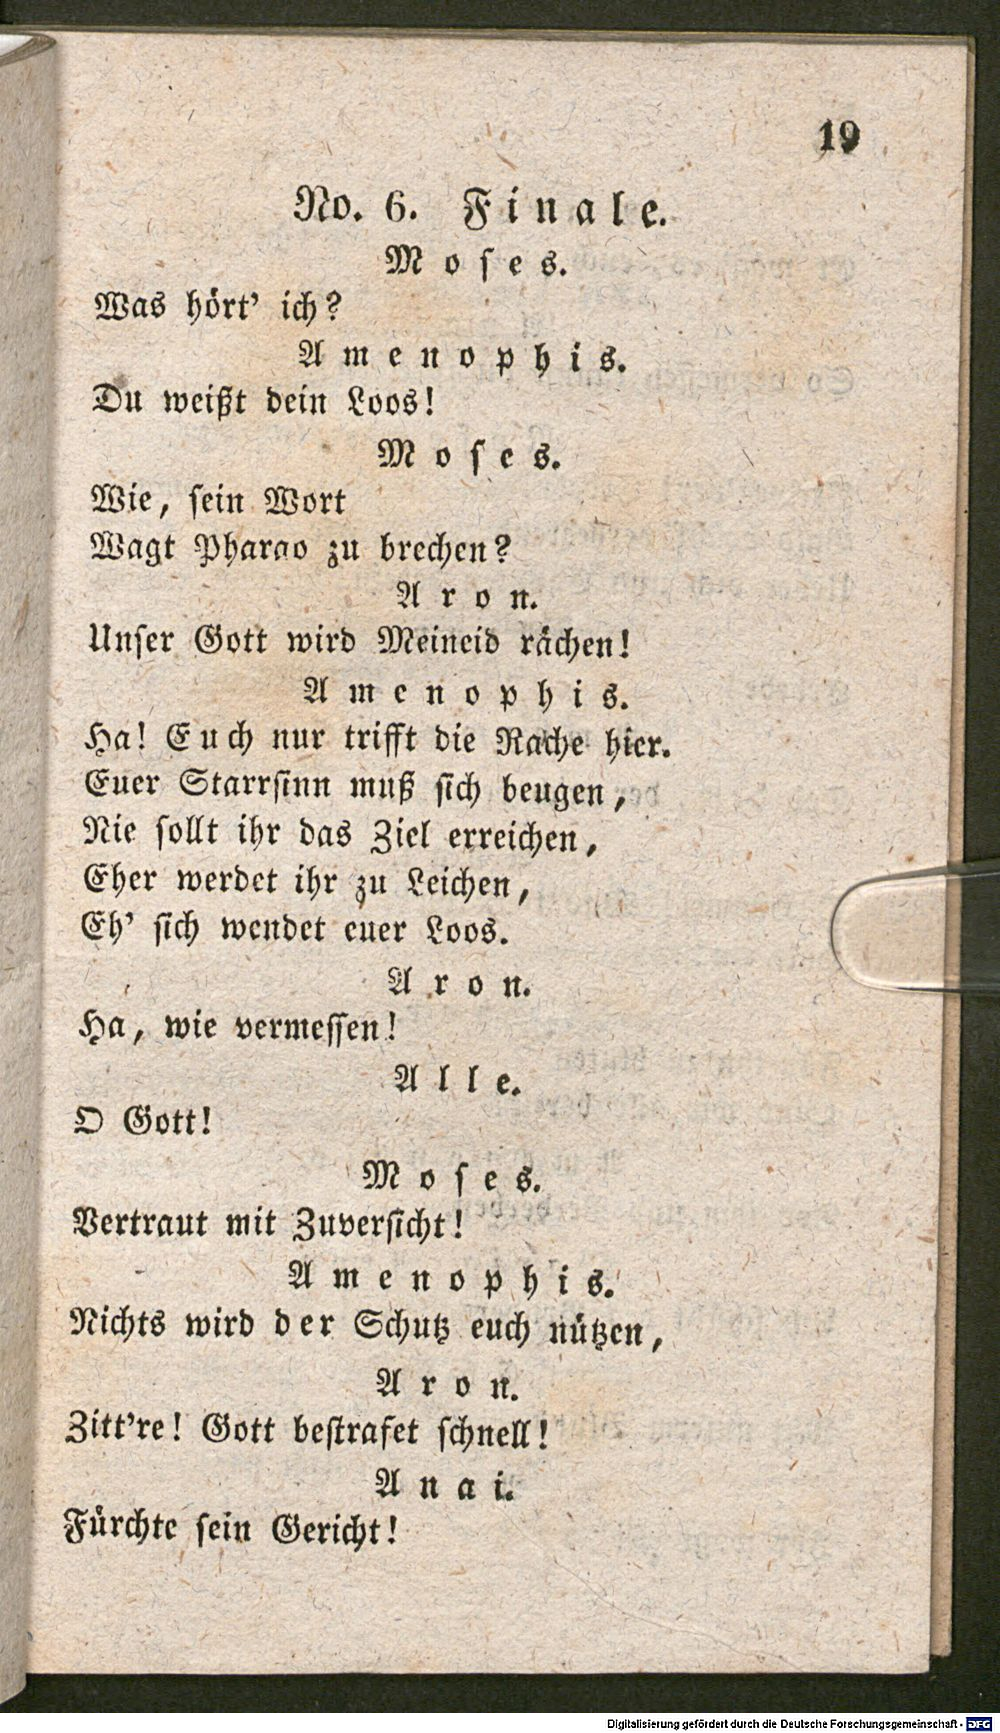 19
No. 6. Finale.
Moses.
Was hört' ich?
Amenophis.
Du weißt dein Loos!
Moses.
Wie, sein Wort
Wagt Pharao zu brechen?
Aron.
Unser Gott wird Meineid rächen!
Amenophis.
Ha! Euch nur trifft die Rache hier.
Euer Starrsinn muß sich beugen,
Nie sollt ihr das Ziel erreichen,
Eher werdet ihr zu Leichen,
Eh' sich wendet euer Loos.
Aron.
Ha, wie vermessen!
Alle.
O Gott!
Moses.
Vertraut mit Zuversicht!
Amenophis.
Nichts wird der Schutz euch nützen,
Aron.
Zitt're! Gott bestrafet schnell!
Anai.
Fürchte sein Gericht!
Digitalisierung gefördert durch die Deutsche Forschungsgemeinschaft - DFG